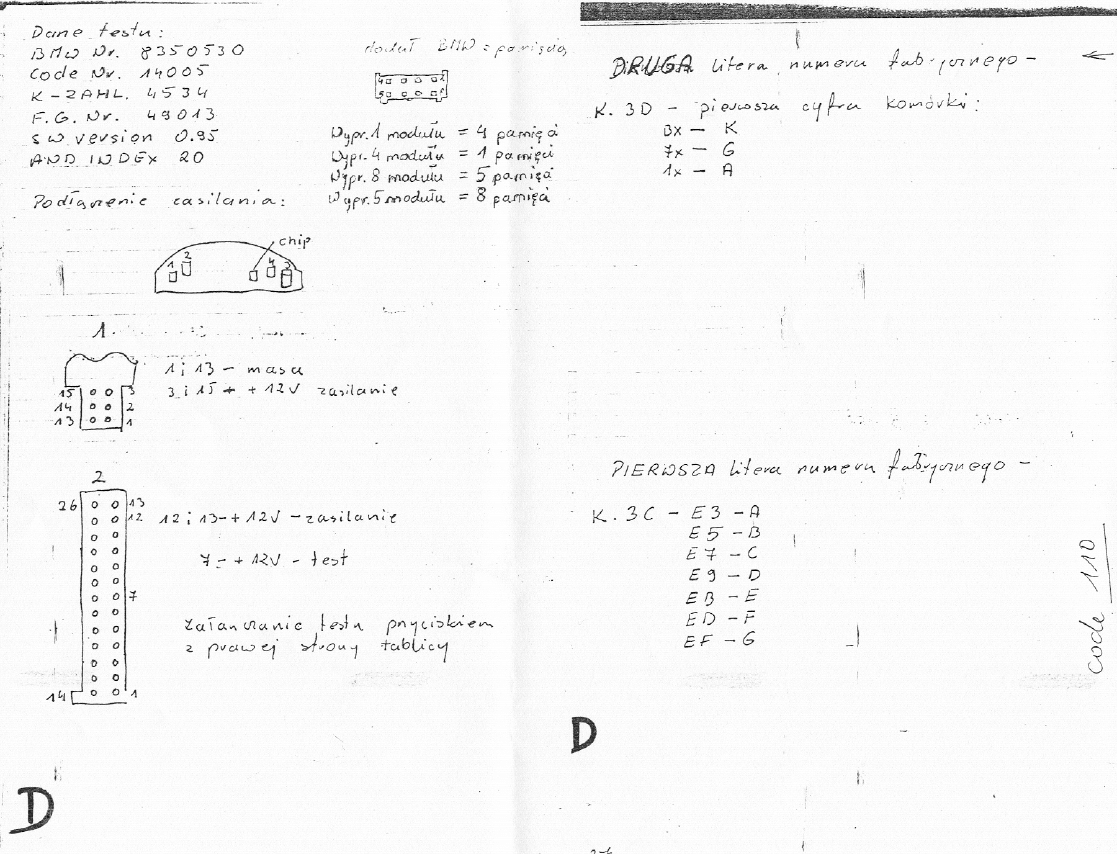 Dane testu:
BMW Nr. 8350530
Code Nr. 14005
K-ZAHL. 4534
F.G. Nr. 49013
SW version 0.95
AND INDEX 20
moduł BMW = pamięcią
4 1
5 8
Wypr.1 modułu = 4 pamięci
Wypr.4 modułu = 1 pamięci
Wypr.8 modułu = 5 pamięci
Wypr.5 modułu = 8 pamięci
Podłączenie zasilania:
chip
1 2 4 3
1.
1 i 13 - masa
3 i 15 - + 12V zasilanie
15 3
14 2
13 1
2
26 13
12
12 i 13 - + 12V - zasilanie
7 - + 12V - test
7
Załączanie testu przyciskiem
z prawej strony tablicy
14 1
D
DRUGA litera numeru fabrycznego -
K. 3D - pierwsza cyfra komórki:
3x - K
7x - G
1x - A
PIERWSZA litera numeru fabrycznego -
K. 3C - E3 - A
E5 - B
E7 - C
E9 - D
EB - E
ED - F
EF - G
code 110
D